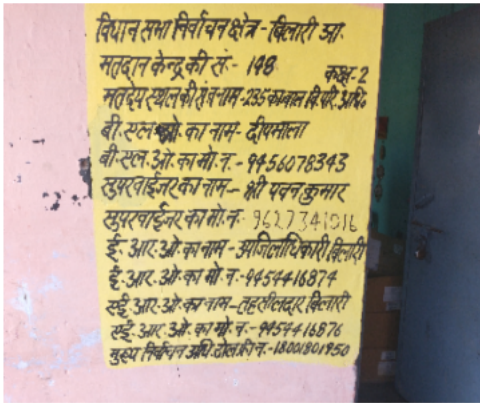 विधान सभा निर्वाचन क्षेत्र - बिलारी
मतदान केन्द्र की सं.- 148 कक्ष-2
मतदेय स्थल की सं व नाम-235
बी.एल.ओ. का नाम - दीपमाला
बी.एल.ओ. का मो. न. - 9456078343
सुपरवाईजर का नाम - श्री पवन कुमार
सुपरवाईजर का मो. न. 9627341016
ई. आर. ओ. का नाम - उपजिलाधिकारी बिलारी
ई. आर. ओ. का मो. न.- 9454416874
एई. आर. ओ. का नाम - तहसीलदार बिलारी
एई. आर. ओ. का मो. न. - 9454416876
मुख्य निर्वाचन अधि. टोल फ्री न. - 18001801950